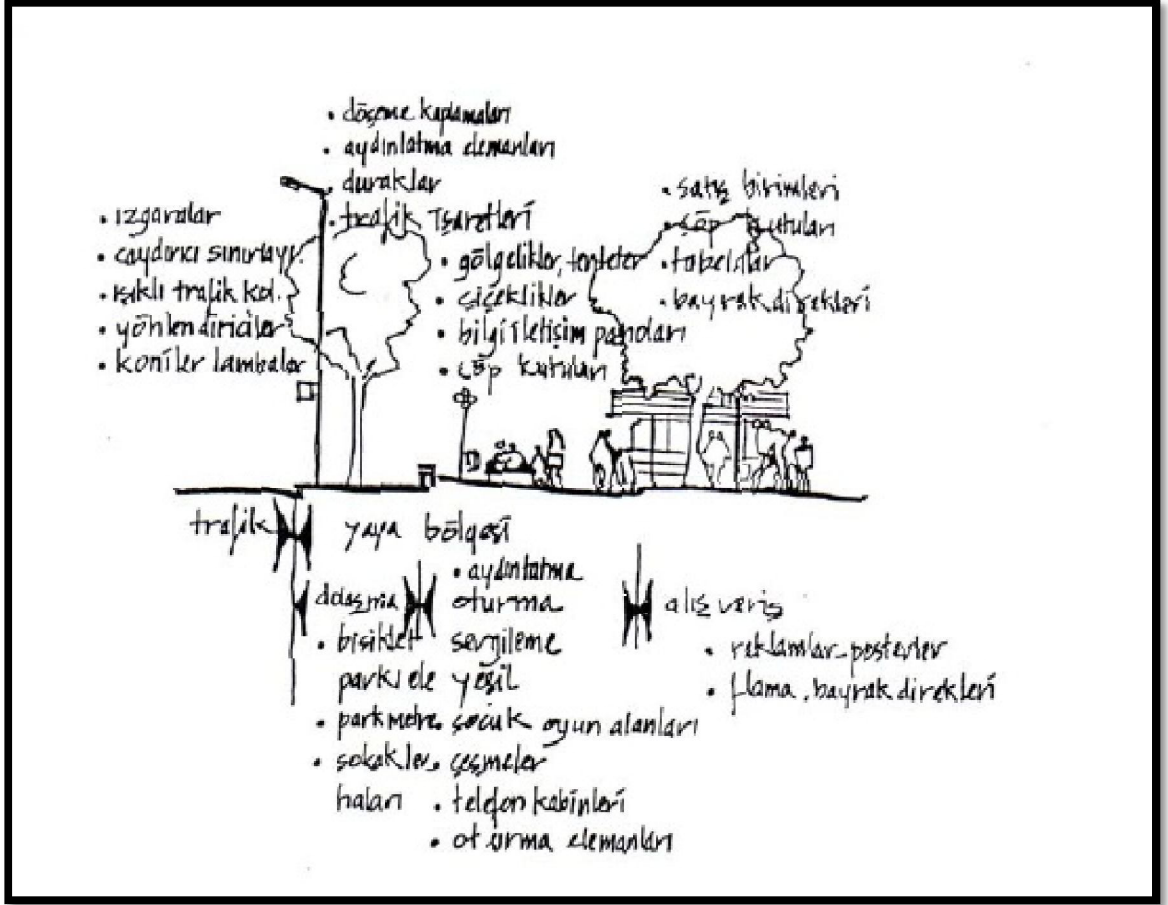 • döşeme kaplamaları
• aydınlatma elemanları
• duraklar
• trafik işaretleri
• ızgaralar
• caydırıcı sınırlayı.
• ışıklı trafik kol.
• yönlendiriciler
• koniler lambalar
• gölgelikler, tenteler
• çiçeklikler
• bilgi iletişim panoları
• çöp kutuları
• satış birimleri
• çöp kutuları
• tabelalar
• bayrak direkleri
trafik
yaya bölgesi
dolaşma
• bisiklet
parkı
• parkmetre
• sokak
• aydınlatma
oturma
sergileme
yeşil
çocuk oyun alanları
• çeşmeler
• telefon kabinleri
• oturma elemanları
alış veriş
• reklamlar-posterler
• flama, bayrak direkleri